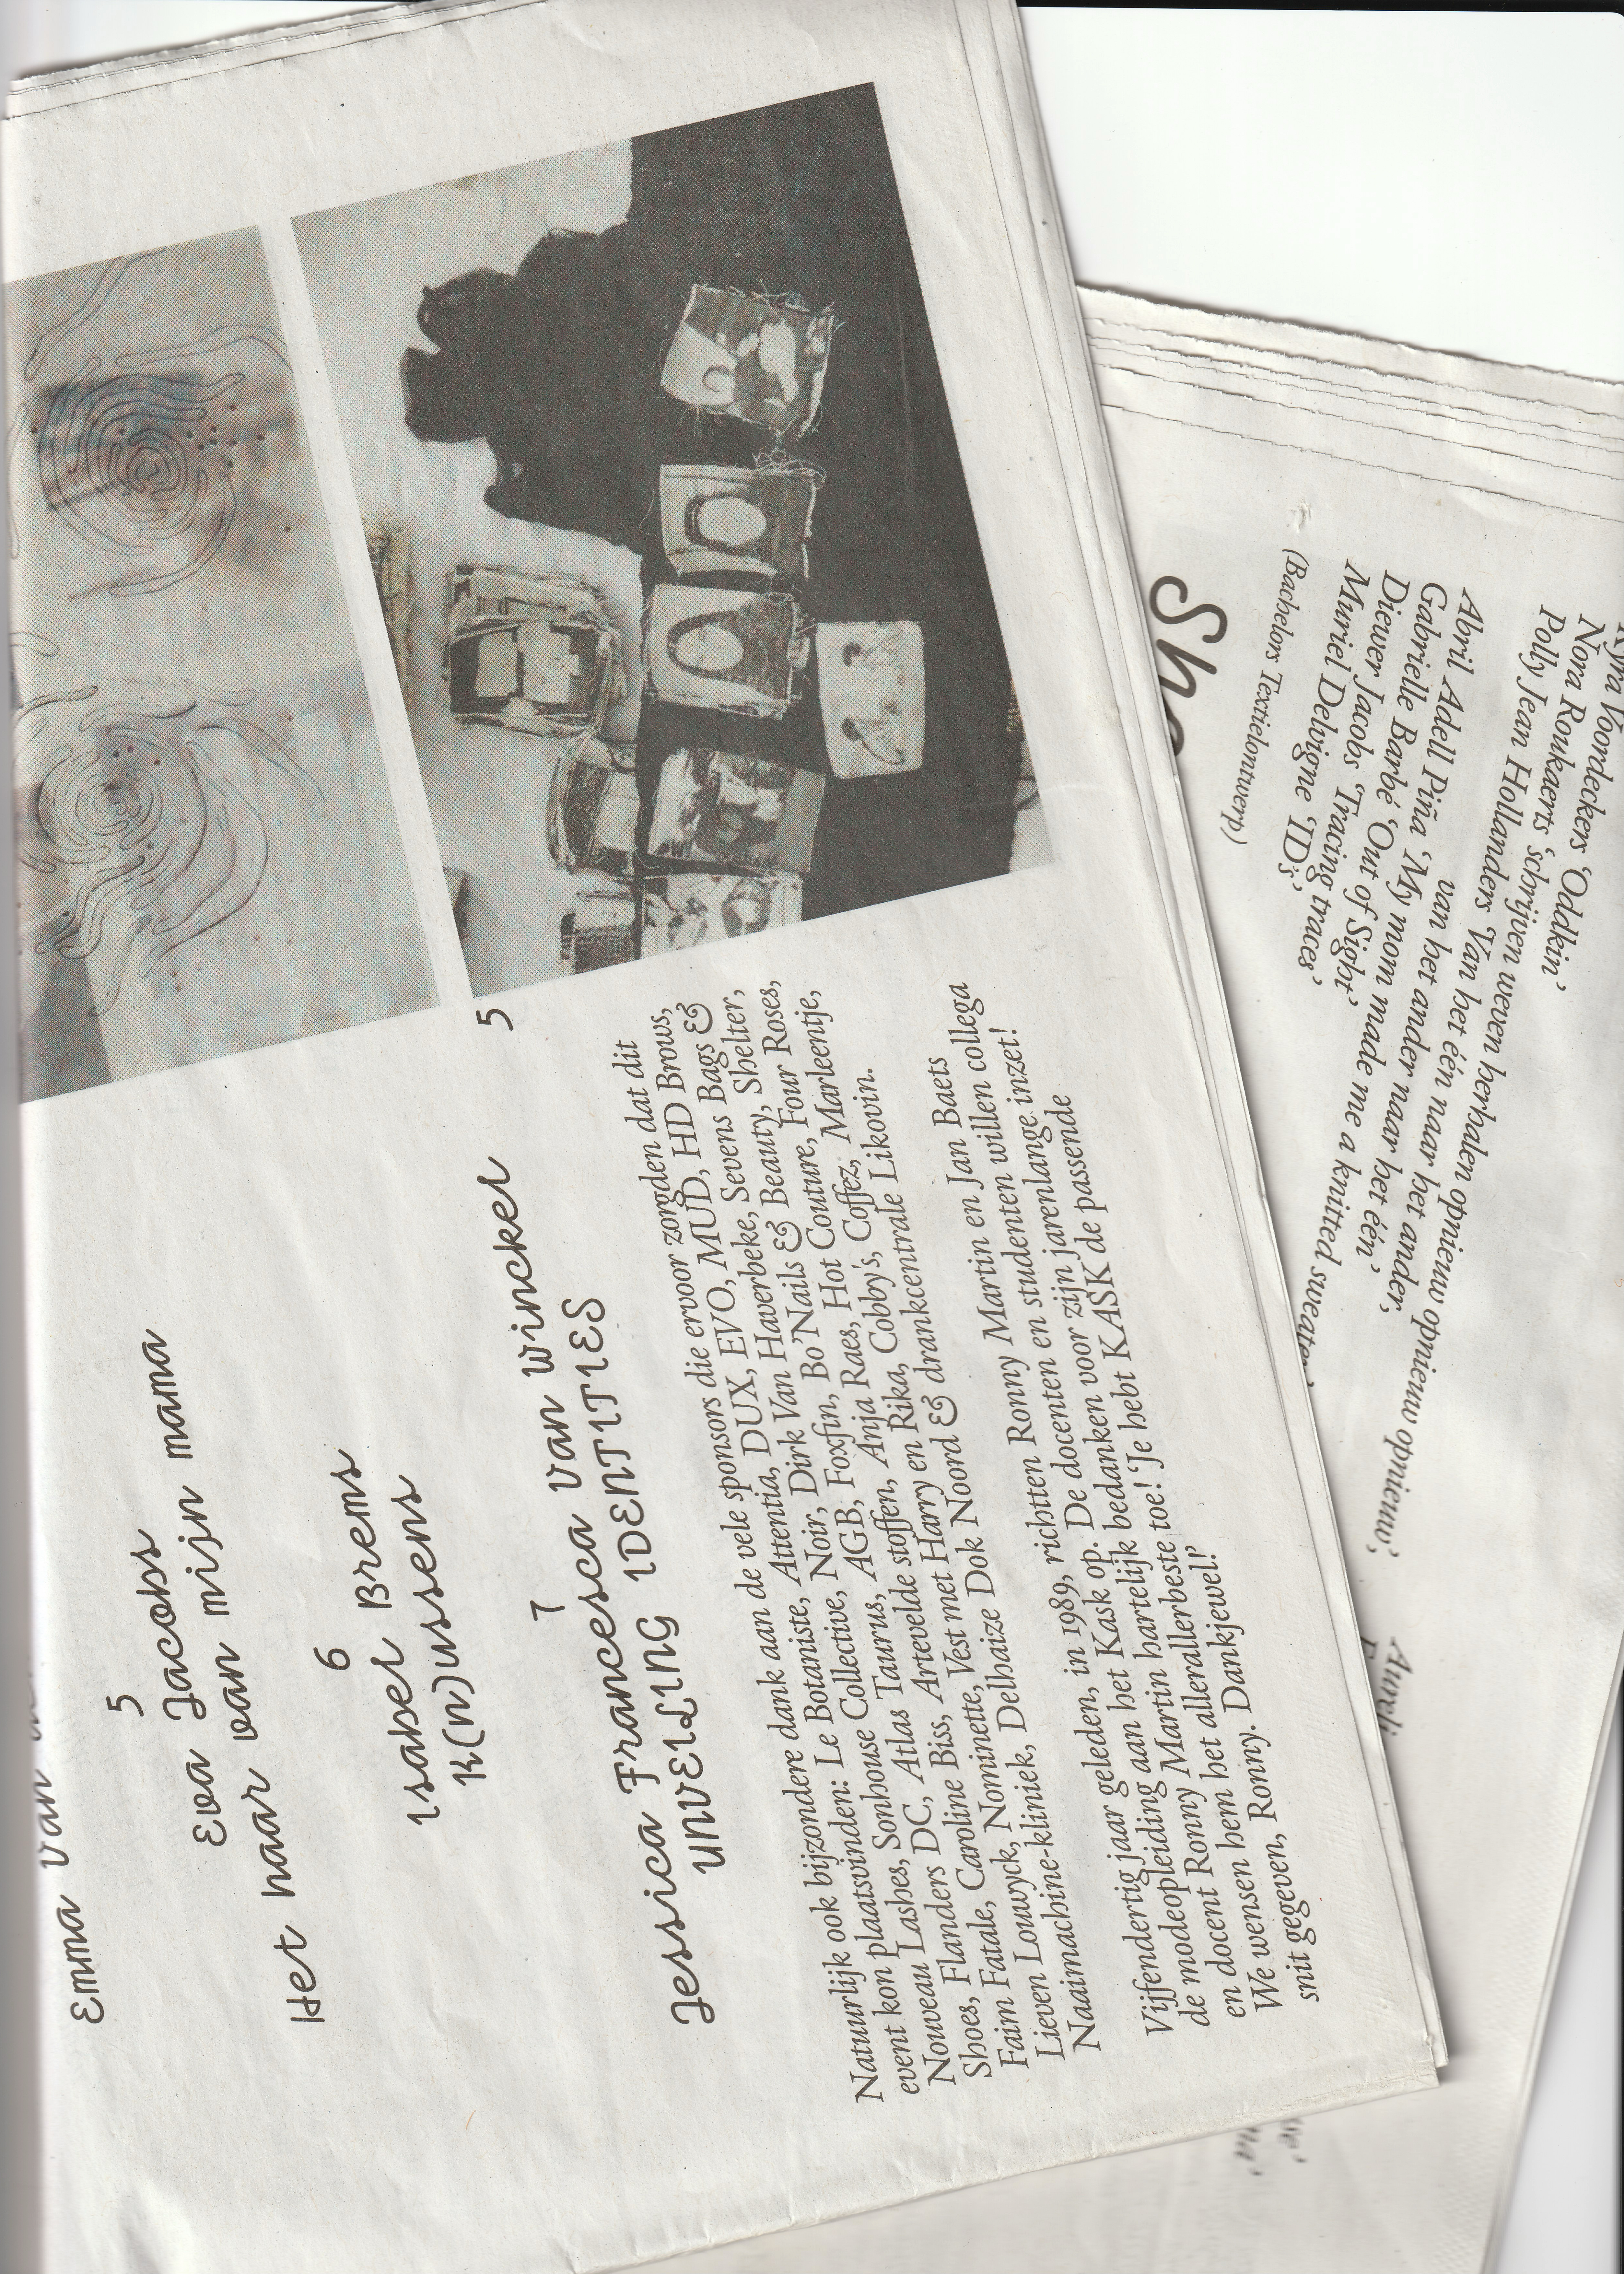 Emma Van
5
Eva Jacobs
Het haar van mijn mama
6
Isabel Brems
K(n)ussens
7
Jessica Francesca Van Winckel
UNVEILING IDENTITIES
5
Natuurlijk ook bijzondere dank aan de vele sponsors die ervoor zorgden dat dit
event kon plaatsvinden: Le Botaniste, Attentia, DUX, EVO, MUD, HD Brows,
Nouveau Lashes, Sonhouse Collective, Noir, Dirk Van Haverbeke, Sevens Bags &
Shoes, Flanders DC, Atlas Taurus, AGB, Foxfin, Bo'Nails & Beauty, Shelter,
Faim Fatale, Caroline Biss, Artevelde stoffen, Anja Raes, Hot Couture, Four Roses,
Lieven Louwyck, Nominette, Vest met Harry en Rika, Cobby's, Coffez, Marleentje,
Naaimachine-kliniek, Delhaize Dok Noord & drankcentrale Likovin.
Vijfendertig jaar geleden, in 1989, richtten Ronny Martin en Jan Baets
de modeopleiding aan het Kask op. De docenten en studenten willen collega
en docent Ronny Martin hartelijk bedanken voor zijn jarenlange inzet!
We wensen hem het allerallerbeste toe! 'Je hebt KASK de passende
snit gegeven, Ronny. Dankjewel!'
Sho
(Bachelors Textielontwerp)
Muriel Delvigne 'ID's'
Diewer Jacobs 'Tracing traces'
Gabriëlle Barbé 'Out of Sight'
Abril Adell Piña 'My mom made me a knitted sweater'
Polly Jean Hollanders 'Van het één naar het ander,
van het ander naar het één'
Nora Roukaerts 'schrijven weven herhalen opnieuw opnieuw opnieuw'
Voordeckers 'Oddkin'